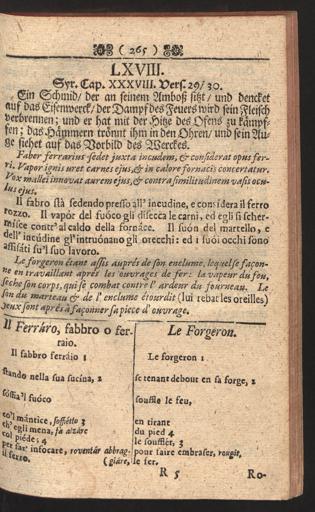 ( 265 )
LXVIII.
Syr. Cap. XXXVIII. Vers. 29/30.
Ein Schmid/ der an seinem Amboß sitzt/ und dencket
auf das Eisenwerck/ der Dampf des Feuers wird sein Fleisch
verbrennen; und er hat mit der Hitze des Ofens zu kämpf-
fen; das Hämmern trönnt ihm in den Ohren/ und sein Au-
ge siehet auf das Vorbild des Werckes.
Faber ferrarius sedet juxta incudem, & considerat opus fer-
ri. Vapor ignis uret carnes ejus, & in calore fornacis concertatur.
Vox mallei innovat aurem ejus, & contra similitudinem vasis ocu-
lus ejus.
Il fabro stà sedendo presso all' incudine, e considera il ferro
rozzo. Il vapor del fuoco gli disecca le carni, ed egli si scher-
misce contr' al caldo della fornace. Il suón del martello, e
dell' incúdine gl'intruónano gli orecchi: ed i suói occhi sono
affisáti su'l suo lavoro.
Le forgeron étant assis auprés de son enclume, lequel se façon-
ne en travaillant aprés les ouvrages de fer: la vapeur du feu,
seche son corps, qui se combat contre l' ardeur du fourneau. Le
son du marteau & de l' enclume étourdit (lui rebat les oreilles)
yeux sont aprés à façonner sa piece d'ouvrage.
Il Ferráro, fabbro o fer-
raio.
Il fabbro ferráio 1
stando nella sua fucina, 2
sóffia'l fuóco
co'l mántice, soffiétto 3
ch' egli mena, fa alzáre
col piéde; 4
per far' infocare, roventár abbrag-
(giáre, il ferro.
Le Forgeron.
Le forgeron 1.
se tenant debout en sa forge, 2
souffle le feu,
en tirant
du pied 4
le soufflèt, 3
pour faire embraser, rougir,
le fer,
R 5
Ro-